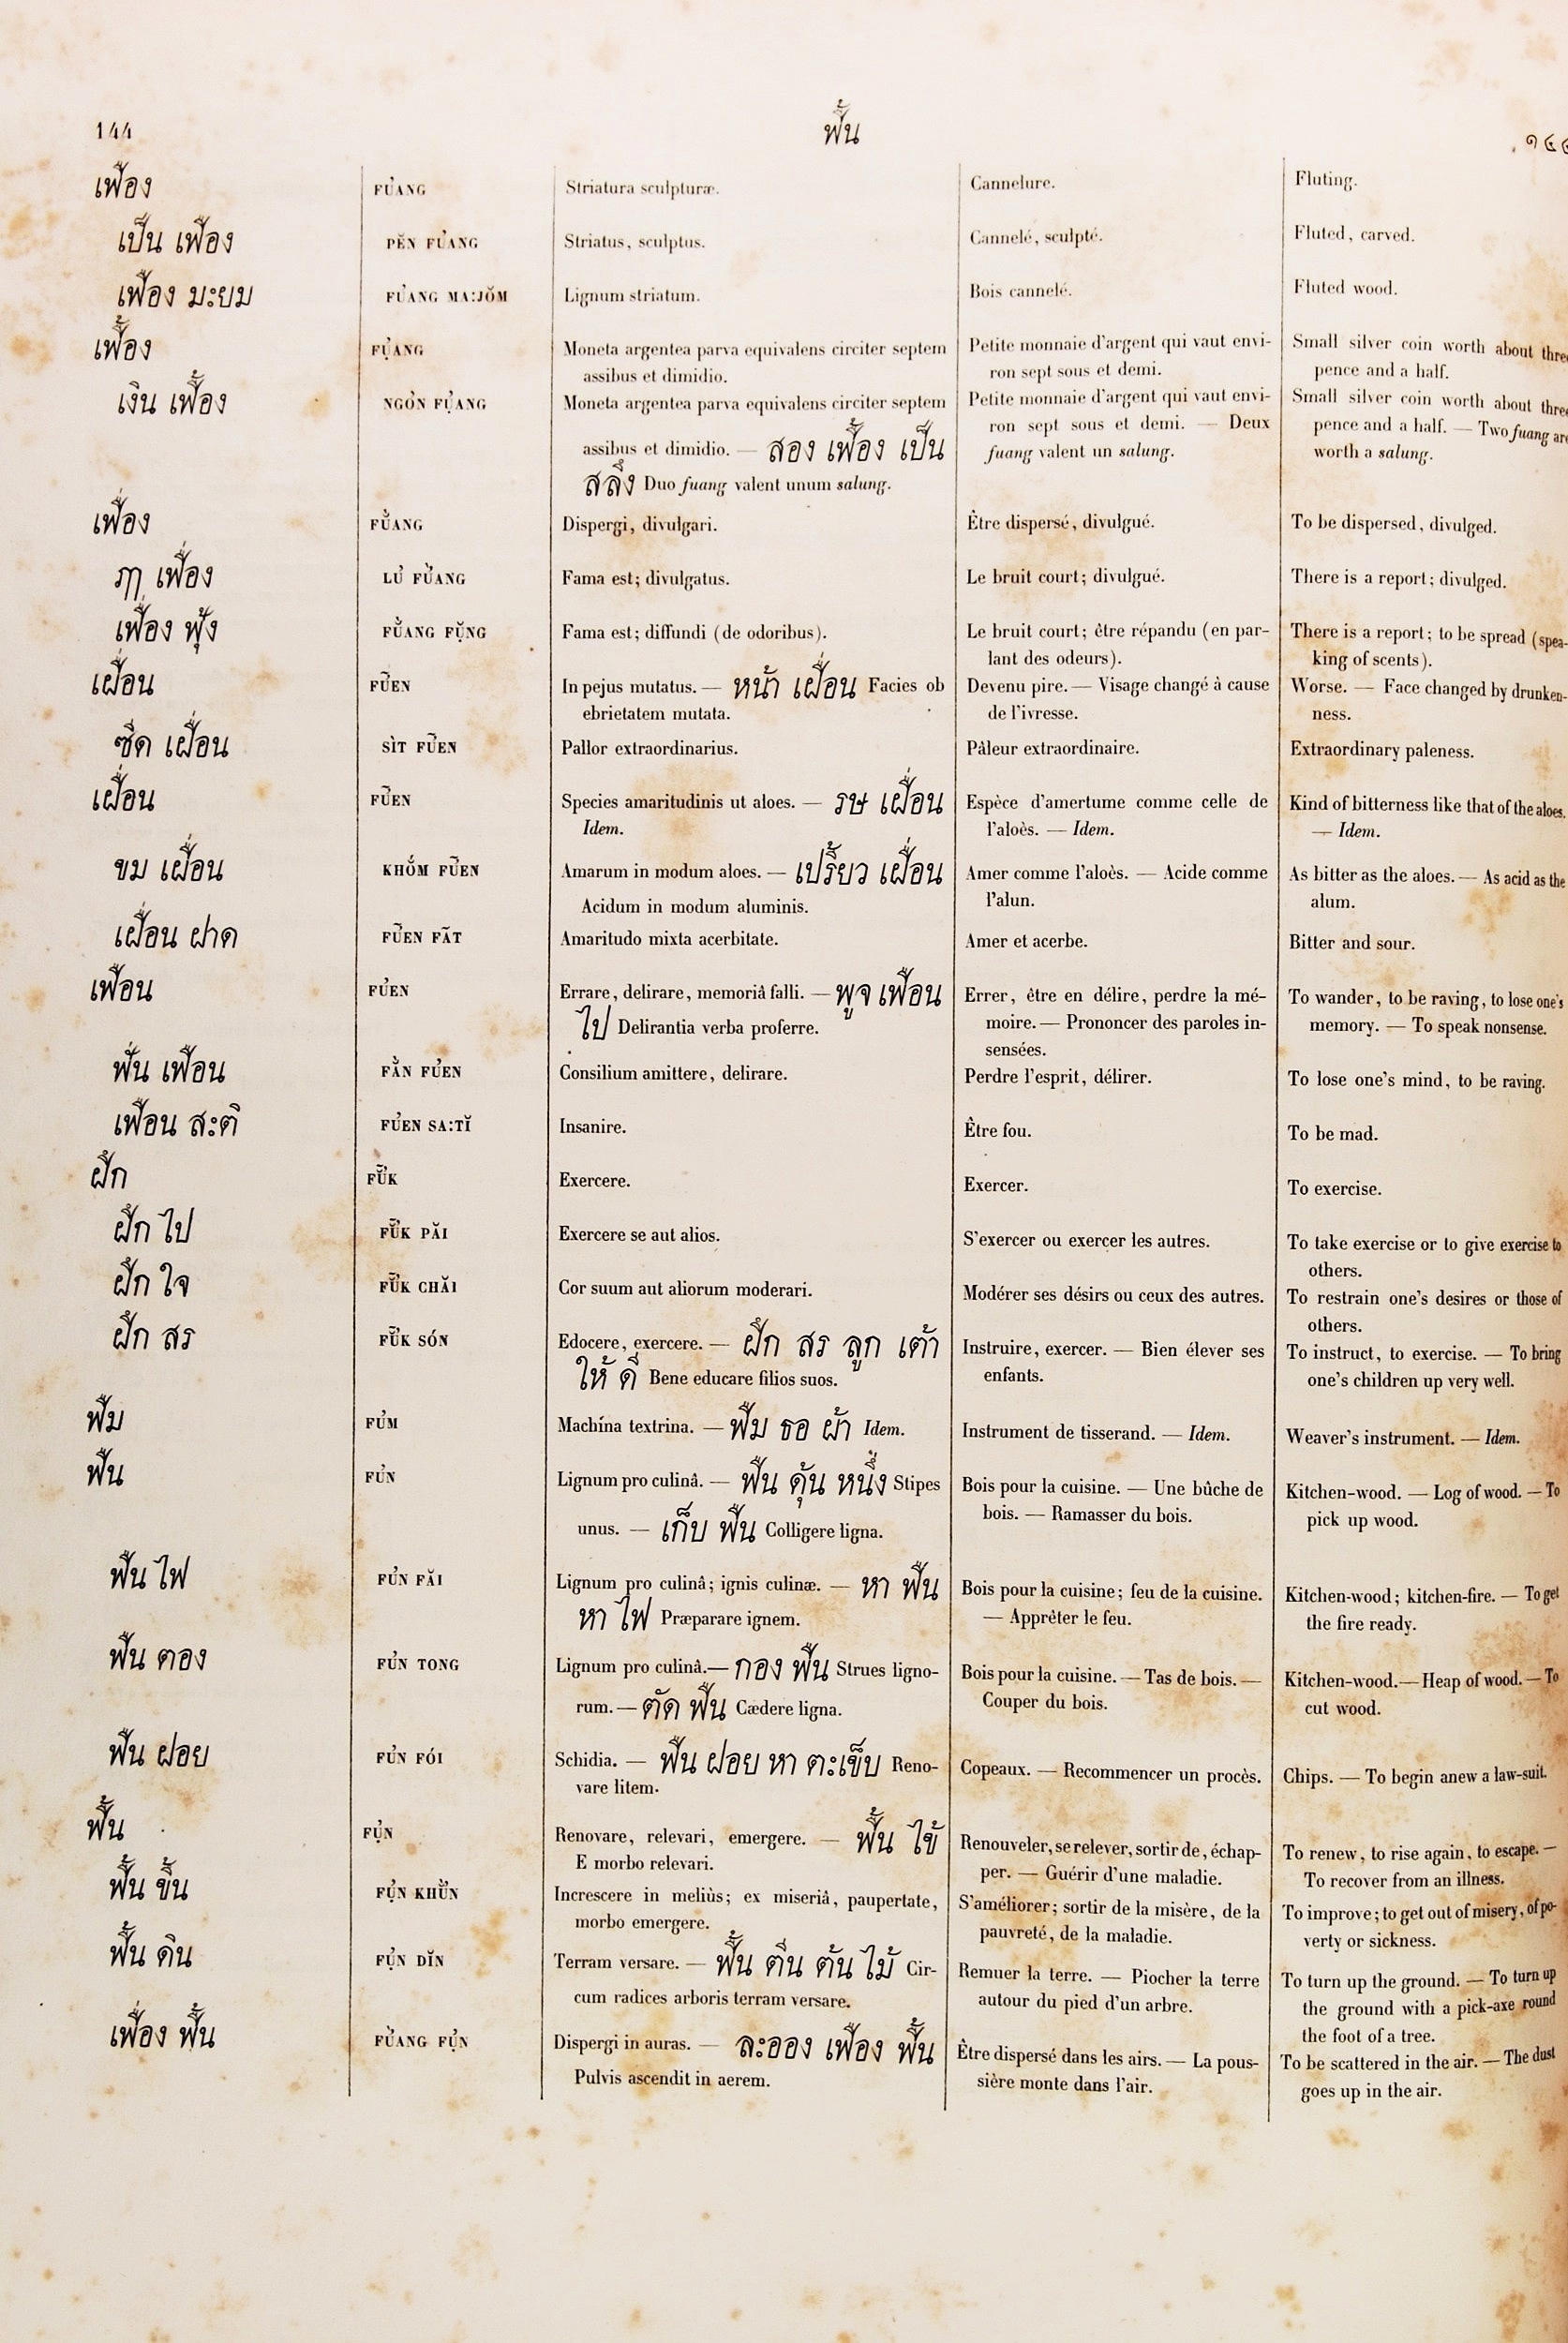 144 ฟื้น ๑๔๔
เฟือง FU̓ANG Striatura sculpturæ. Cannelure. Fluting.
เป็น เฟือง PĔN FU̓ANG Striatus, sculptus. Cannelé, sculpté. Fluted, carved.
เฟือง มะยม FU̓ANG MA:JŎM Lignum striatum. Bois cannelé. Fluted wood.
เฟื้อง FỤ̓ANG Moneta argentea parva equivalens circiter septem Petite monnaie d'argent qui vaut envi- Small silver coin worth about three
assibus et dimidio. ron sept sous et demi. pence and a half.
เงิน เฟื้อง NGO̓N FỤ̓ANG Moneta argentea parva equivalens circiter septem Petite monnaie d'argent qui vaut envi- Small silver coin worth about three
assibus et dimidio. — สอง เฟื้อง เป็น ron sept sous et demi. — Deux pence and a half. — Two fuang are
สลึง Duo fuang valent unum salung. fuang valent un salung. worth a salung.
เฟื่อง FU̓̀ANG Dispergi, divulgari. Être dispersé, divulgué. To be dispersed, divulged.
ฦๅ เฟื่อง LU̓ FU̓̀ANG Fama est; divulgatus. Le bruit court; divulgué. There is a report; divulged.
เฟื่อง ฟุ้ง FU̓̀ANG FỤ̆NG Fama est; diffundi (de odoribus). Le bruit court; être répandu (en par- There is a report; to be spread (spea-
lant des odeurs). king of scents).
เฝื่อน FŨ̓EN In pejus mutatus. — หน้า เฝื่อน Facies ob Devenu pire. — Visage changé à cause Worse. — Face changed by drunken-
ebrietatem mutata. de l'ivresse. ness.
ซีด เฝื่อน SÌT FŨ̓EN Pallor extraordinarius. Pâleur extraordinaire. Extraordinary paleness.
เฝื่อน FŨ̓EN Species amaritudinis ut aloes. — รษ เฝื่อน Espèce d'amertume comme celle de Kind of bitterness like that of the aloes.
Idem. l'aloès. — Idem. — Idem.
ขม เฝื่อน KHỐM FŨ̓EN Amarum in modum aloes. — เปรี้ยว เฝื่อน Amer comme l'aloès. — Acide comme As bitter as the aloes. — As acid as the
Acidum in modum aluminis. l'alun. alum.
เฝื่อน ฝาด FŨ̓EN FÃT Amaritudo mixta acerbitate. Amer et acerbe. Bitter and sour.
เฟือน FU̓EN Errare, delirare, memoriâ falli. — พูจ เฟือน Errer, être en délire, perdre la mé- To wander, to be raving, to lose one's
ไป Delirantia verba proferre. moire. — Prononcer des paroles in- memory. — To speak nonsense.
sensées.
ฟั่น เฟือน FẰN FU̓EN Consilium amittere, delirare. Perdre l'esprit, délirer. To lose one's mind, to be raving.
เฟือน สะติ FU̓EN SA:TĬ Insanire. Être fou. To be mad.
ฝึก FŨ̓K Exercere. Exercer. To exercise.
ฝึก ไป FŨ̓K PĂI Exercere se aut alios. S'exercer ou exercer les autres. To take exercise or to give exercise to
others.
ฝึก ใจ FŨ̓K CHĂI Cor suum aut aliorum moderari. Modérer ses désirs ou ceux des autres. To restrain one's desires or those of
others.
ฝึก สร FŨ̓K SÓN Edocere, exercere. — ฝึก สร ลูก เต้า Instruire, exercer. — Bien élever ses To instruct, to exercise. — To bring
ให้ ดี Bene educare filios suos. enfants. one's children up very well.
ฟืม FU̓M Machína textrina. — ฟืม ธอ ผ้า Idem. Instrument de tisserand. — Idem. Weaver's instrument. — Idem.
ฟืน FU̓N Lignum pro culinâ. — ฟืน ดุ้น หนึ่ง Stipes Bois pour la cuisine. — Une bûche de Kitchen-wood. — Log of wood. — To
unus. — เก็บ ฟืน Colligere ligna. bois. — Ramasser du bois. pick up wood.
ฟืน ไฟ FU̓N FĂI Lignum pro culinâ; ignis culinæ. — หา ฟืน Bois pour la cuisine; feu de la cuisine. Kitchen-wood; kitchen-fire. — To get
หา ไฟ Præparare ignem. — Apprêter le feu. the fire ready.
ฟืน ตอง FU̓N TONG Lignum pro culinâ.— กอง ฟืน Strues ligno- Bois pour la cuisine. — Tas de bois. — Kitchen-wood.— Heap of wood. — To
rum. — ตัด ฟืน Cædere ligna. Couper du bois. cut wood.
ฟืน ฝอย FU̓N FÓI Schidia. — ฟืน ฝอย หา ตะเข็บ Reno- Copeaux. — Recommencer un procès. Chips. — To begin anew a law-suit.
vare litem.
ฟื้น FỤ̓N Renovare, relevari, emergere. — ฟื้น ไข้ Renouveler, se relever, sortir de, échap- To renew, to rise again, to escape. —
E morbo relevari. per. — Guérir d'une maladie. To recover from an illness.
ฟื้น ขึ้น FỤ̓N KHŨ̓N Increscere in meliùs; ex miseriâ, paupertate, S'améliorer; sortir de la misère, de la To improve; to get out of misery, of po-
morbo emergere. pauvreté, de la maladie. verty or sickness.
ฟื้น ดิน FỤ̓N DĬN Terram versare. — ฟื้น ตีน ต้น ไม้ Cir- Remuer la terre. — Piocher la terre To turn up the ground. — To turn up
cum radices arboris terram versare. autour du pied d'un arbre. the ground with a pick-axe round
the foot of a tree.
เฟื่อง ฟื้น FU̓̀ANG FỤ̓N Dispergi in auras. — ละออง เฟือง ฟื้น Être dispersé dans les airs. — La pous- To be scattered in the air. — The dust
Pulvis ascendit in aerem. sière monte dans l'air. goes up in the air.